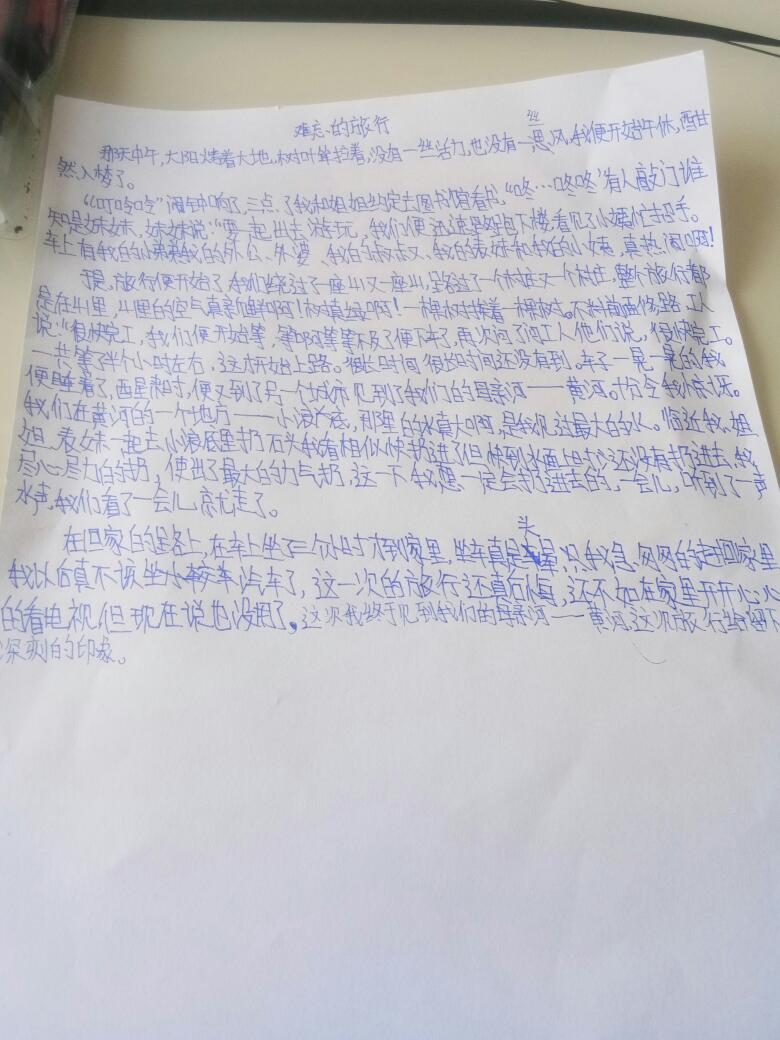 难忘的旅行
那天中午,太阳烤着大地,树叶耷拉着,没有一丝活力,也没有一丝风,我便开始午休,酣甘
然入梦了。
“叮呤呤”闹钟响了,三点了我和姐姐约定去图书馆看书,“咚…咚咚”有人敲门谁
知是妹妹,妹妹说:“要一起出去游玩,我们便迅速跑下楼,看见了小姨忙招手。
车上有我的小弟弟我的外公、外婆、我的叔叔、我的表妹和我的小姨,真热闹啊!
于是,旅行便开始了,我们绕过了一座山又一座山,路过了一个村庄又一个村庄,整个旅行都
是在山里,山里的空气真新鲜啊!树真绿啊!一棵树挨着一棵树。不料前面修路,工人
说:“很快完工,我们便开始等,等啊等等不及了便下车了,再次问了问工人他们说,“很快完工。
一共等了半个小时左右,这才开始上路。很长时间很长时间还没有到。车子一晃一晃的我
便睡着了,酉星来时,便又到了另一个城市见到了我们的母亲河——黄河。十分令我惊讶。
我们在黄河的一个地方——小浪底,那里的水真大啊,是我见过最大的水。临近我、姐
姐、表妹一起去小浪底里扔石头我看相似快扔进了但快到水面上时还没有扔进去,我
尽心尽力的扔,使出了最大的力气扔,这一下我想一定会扔进去的,一会儿,听到了一声
水声,我们看了一会儿就走了。
在回家的路上,在车上坐了三个小时才到家里,坐车真是头晕,只我急匆匆的走回家里
我以后真不该坐小轿车汽车了,这一次的旅行还真后悔,还不如在家里开开心心
的看电视,但现在说也没用了。这次我终于见到我们的母亲河——黄河,这次旅行给留下
深刻的印象。